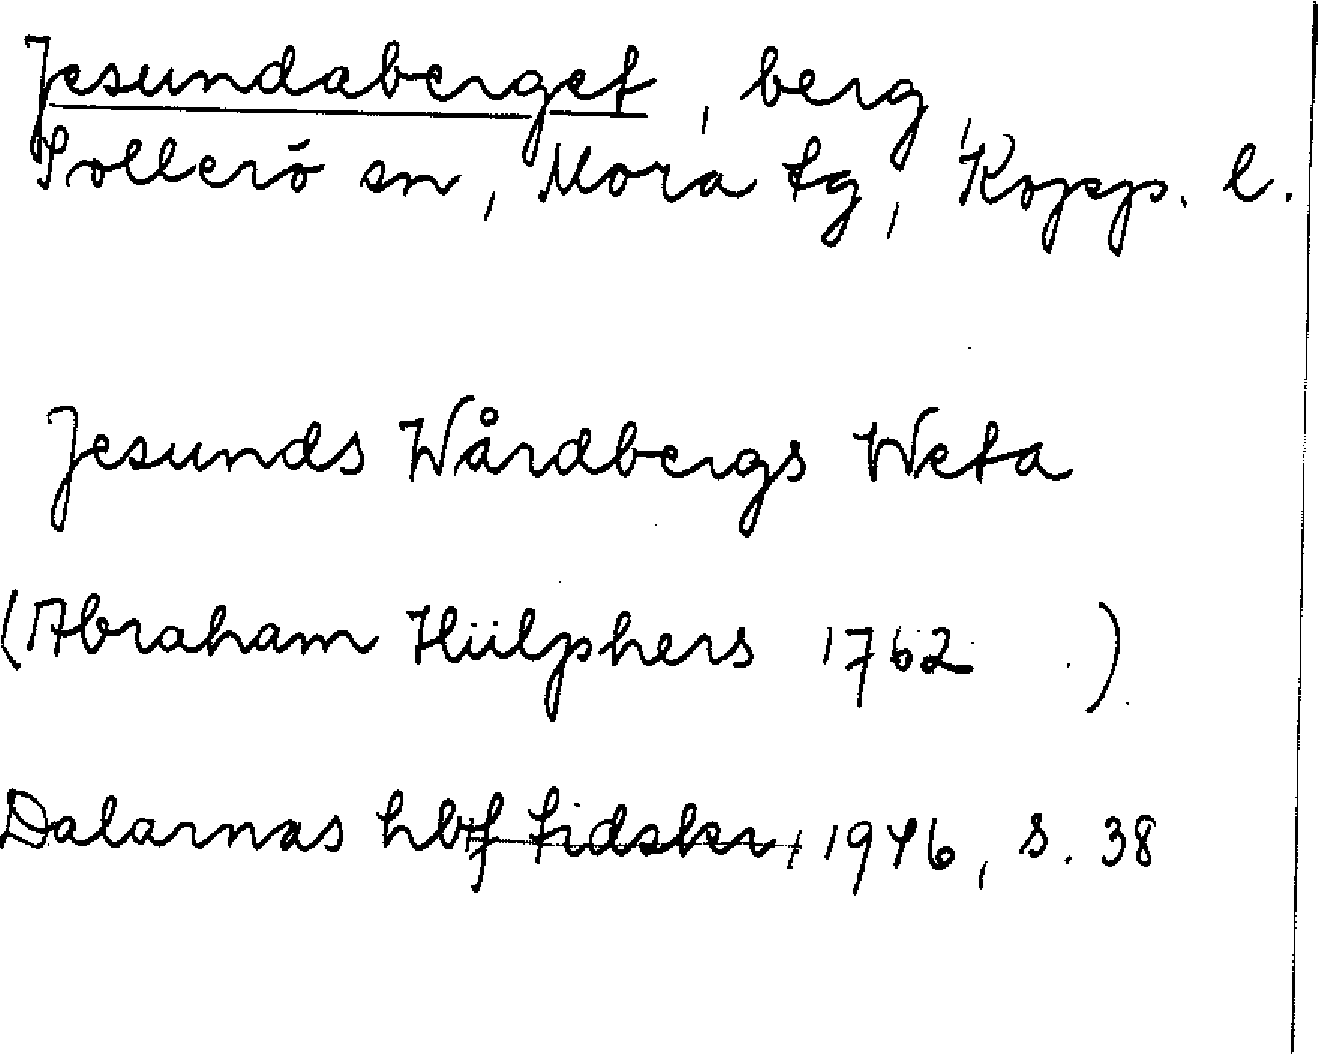 Jesundaberget, berg,
Sollerö sn, Mora tg, Kopp. l.
Jesunds Wårdbergs Weta
(Abraham Hülphers 1762 )
Dalarnas hbf tidskr, 1946, s. 38